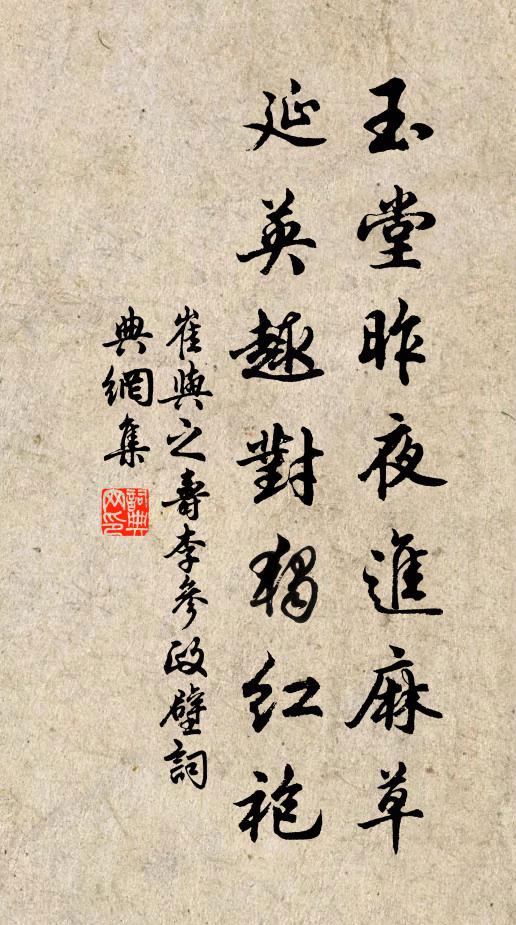 玉堂昨夜進麻草
延英趣對獨紅袍
崔與之壽李參政璧詞
典網集
詞典网印